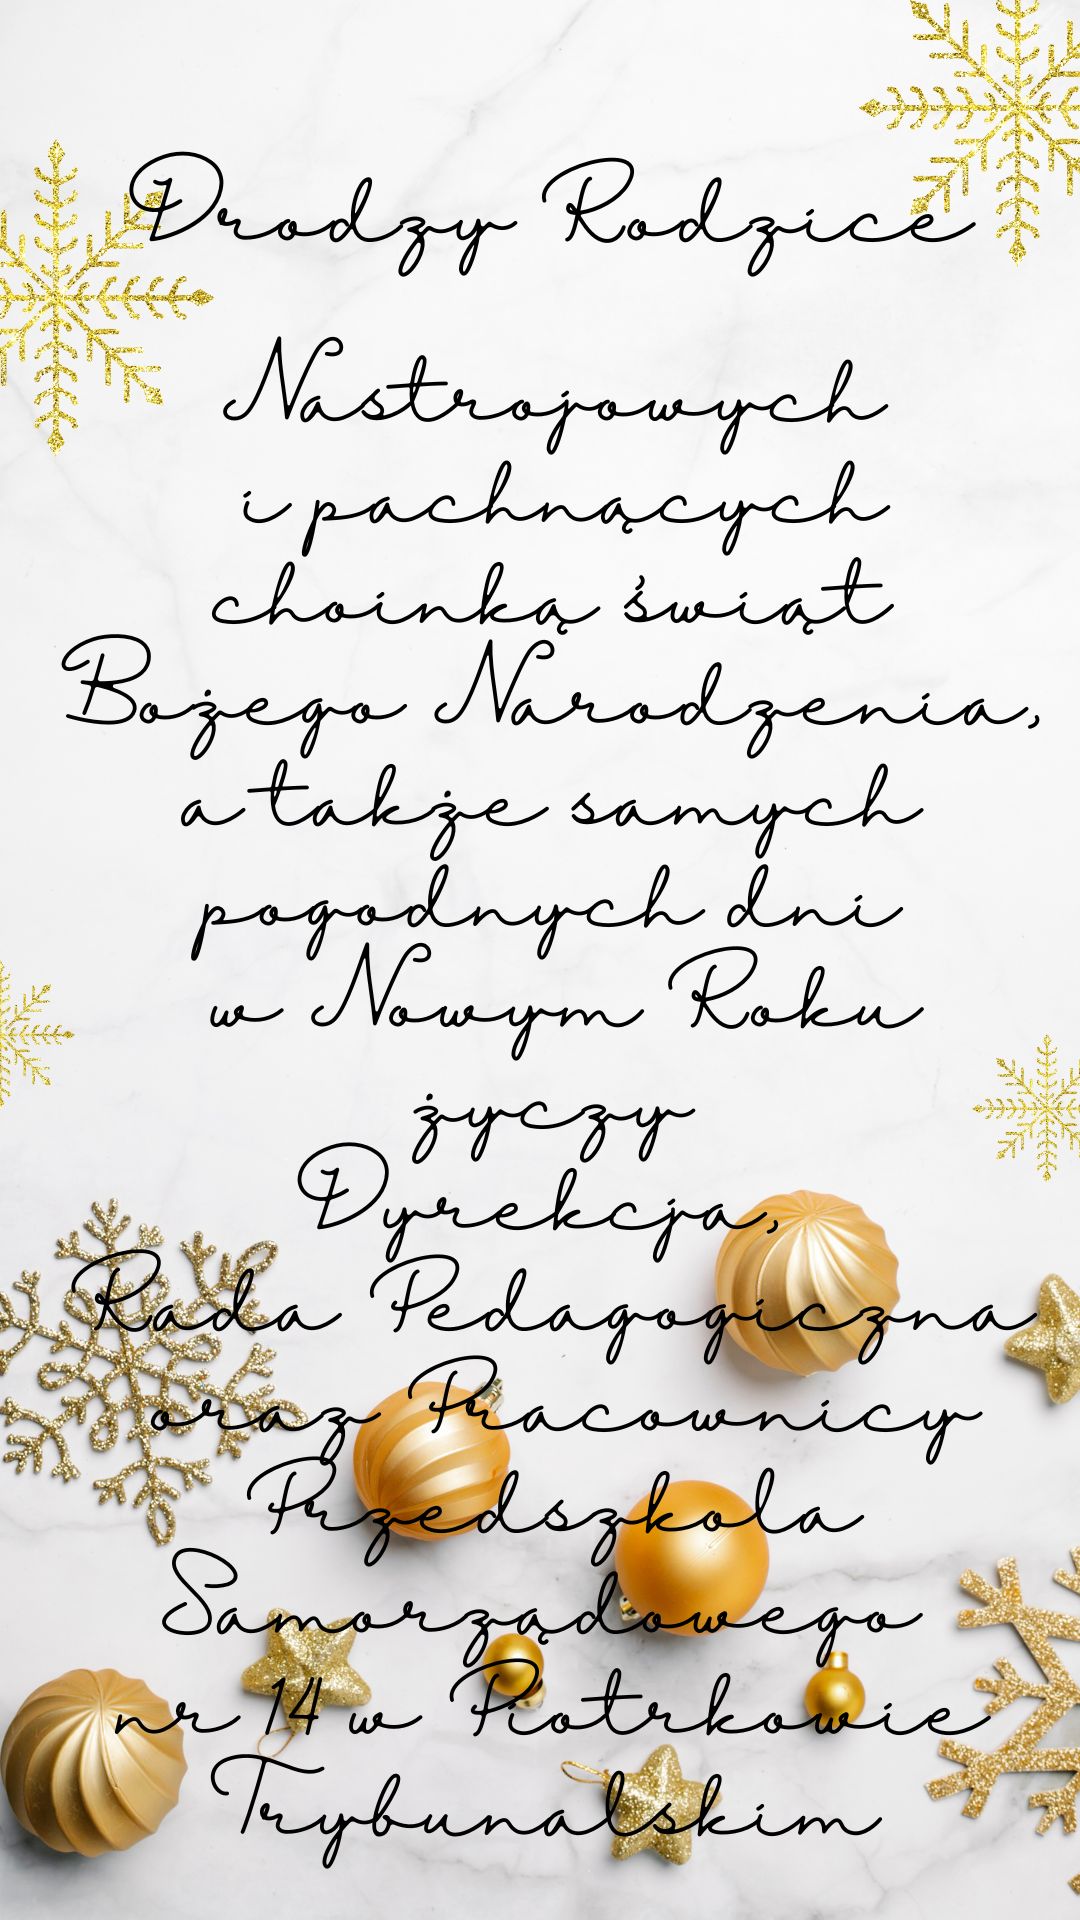 Drodzy Rodzice
Nastrojowych
i pachnących
choinką świąt
Bożego Narodzenia,
a także samych
pogodnych dni
w Nowym Roku
życzy
Dyrekcja,
Rada Pedagogiczna
oraz Pracownicy
Przedszkola
Samorządowego
nr 14 w Piotrkowie
Trybunalskim